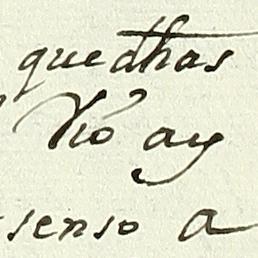 que dhas
Nó ay
senso a